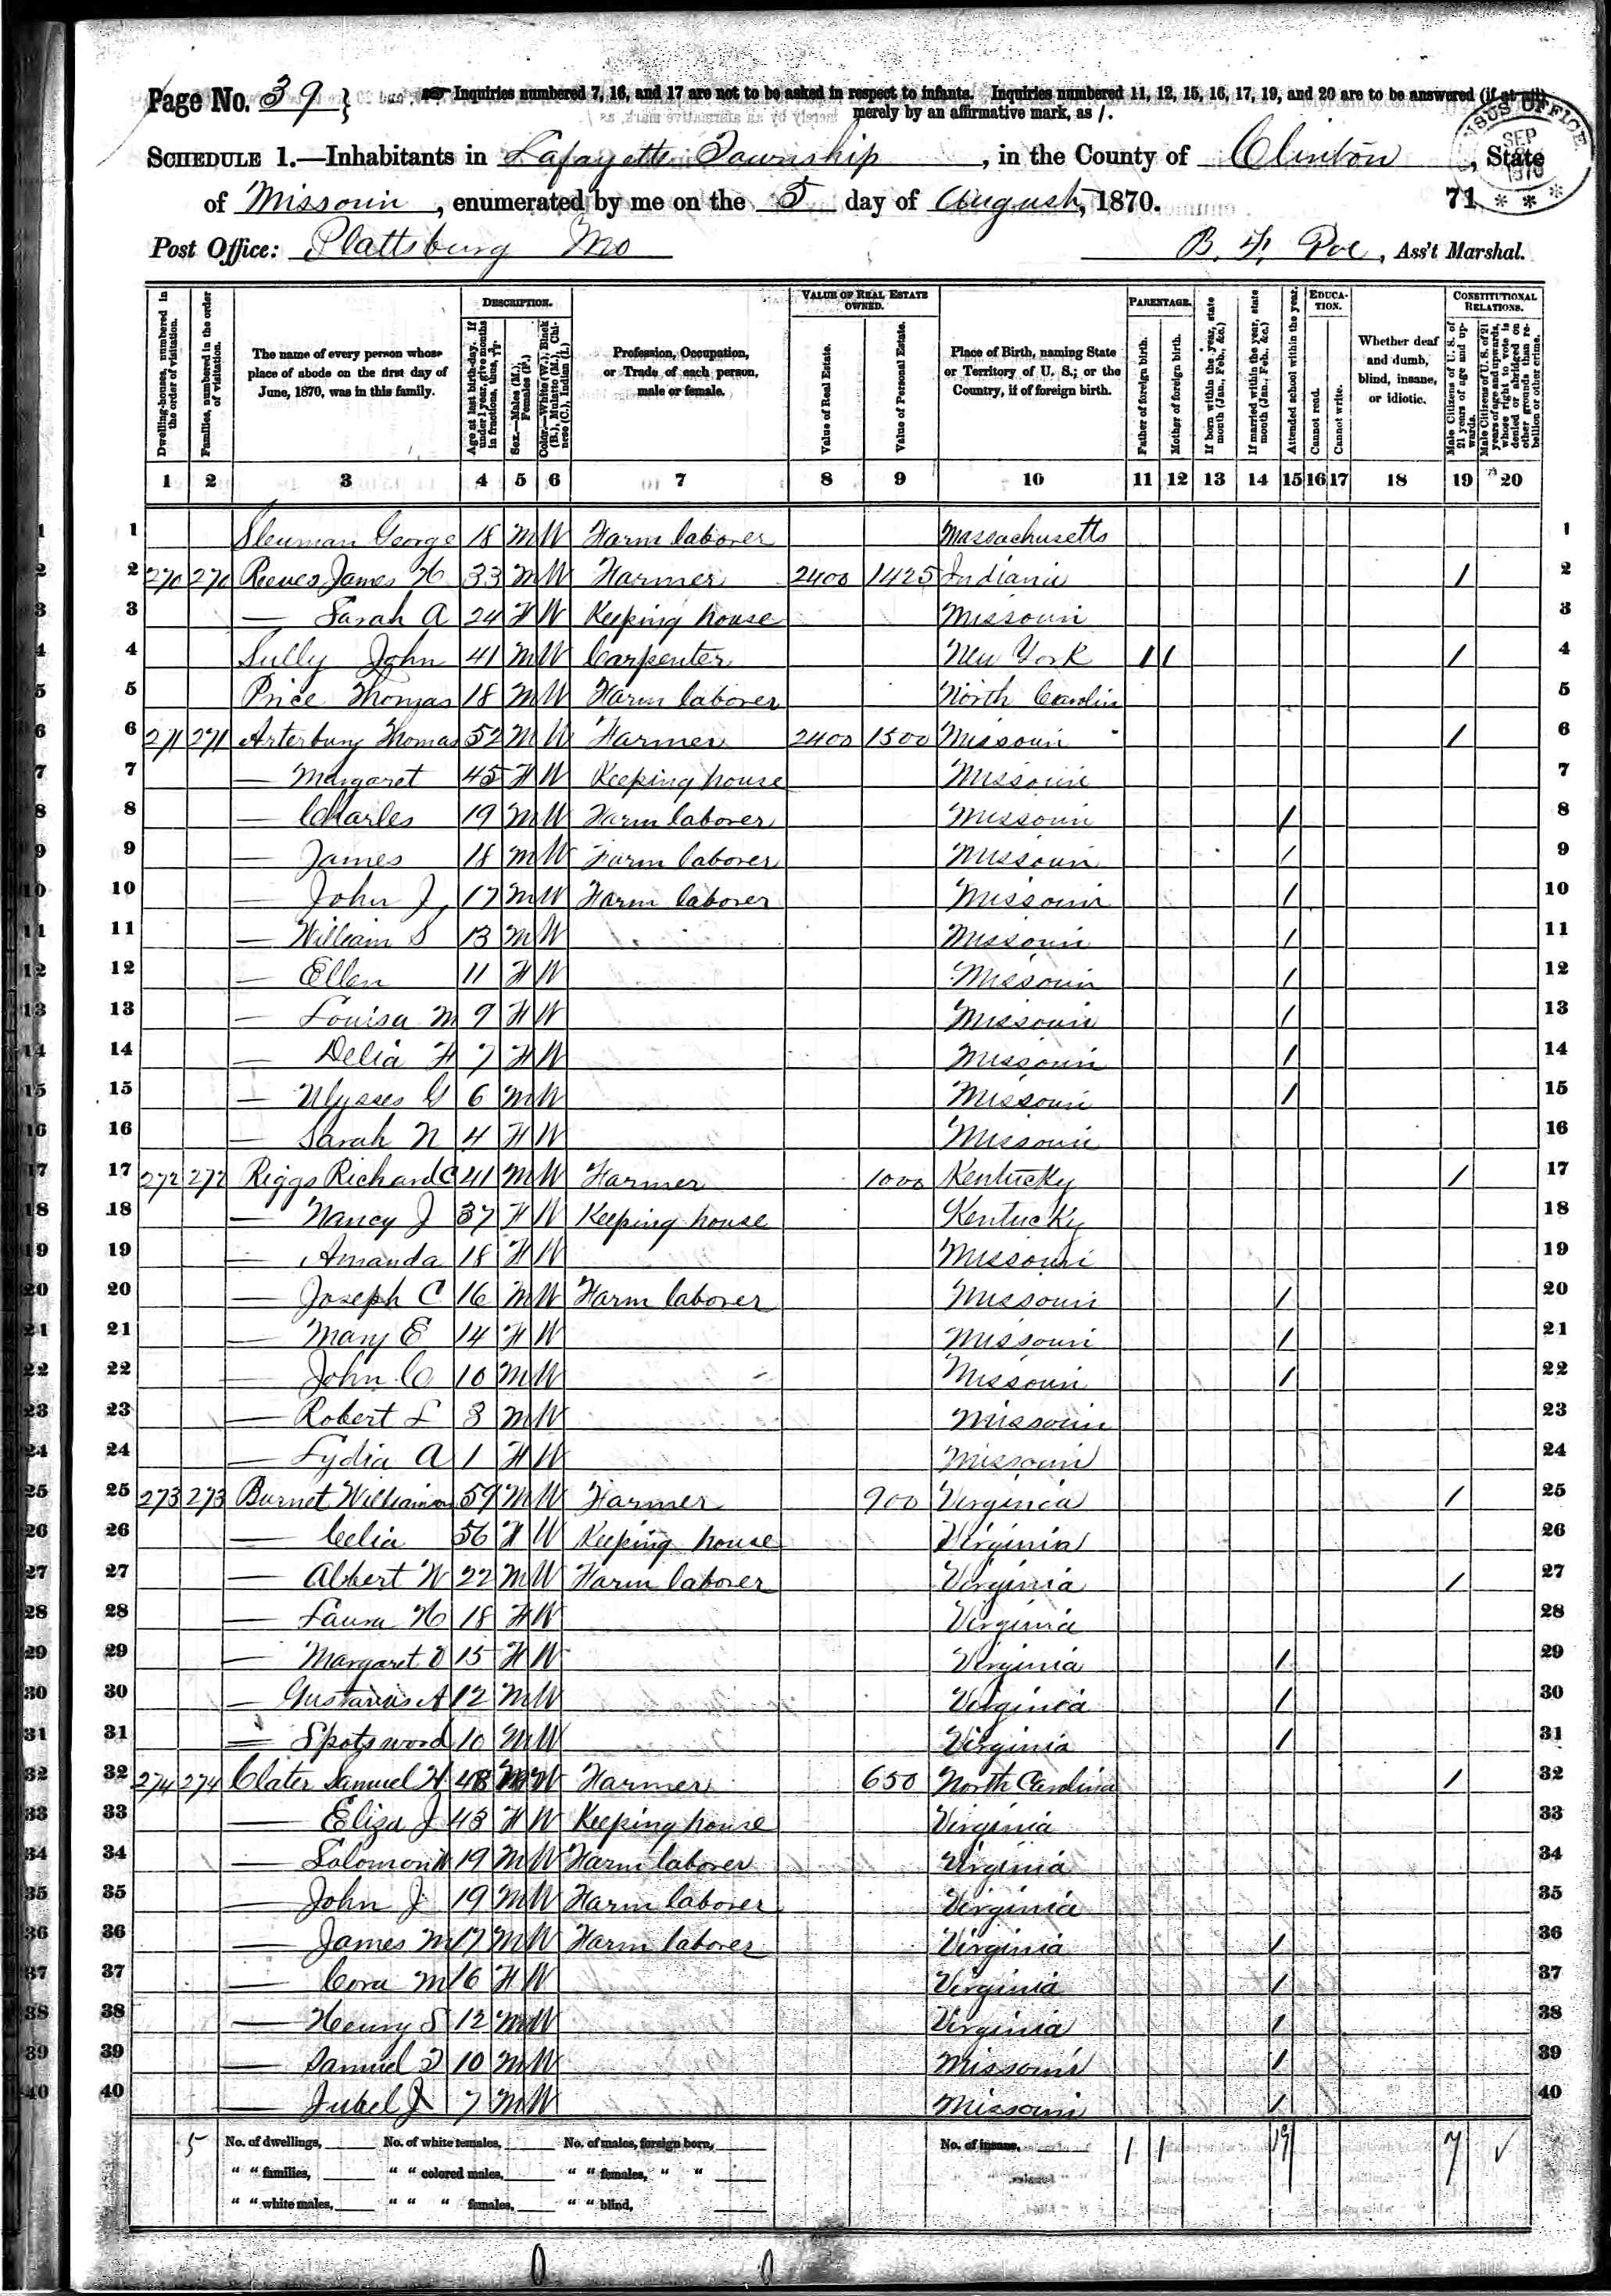 Page No. 39 } Inquiries numbered 7, 16, and 17 are not to be asked in respect to infants. Inquiries numbered 11, 12, 15, 16, 17, 19, and 20 are to be answered (if at all)
merely by an affirmative mark, as /.
SCHEDULE 1.—Inhabitants in Lafayette Township, in the County of Clinton, State
of Missouri, enumerated by me on the 5 day of August, 1870. 71
CENSUS OFFICE SEP 1870 * * *
Post Office: Plattsburg Mo B. F. Poe, Ass't Marshal.
Dwelling-houses, numbered in the order of visitation.
Families, numbered in the order of visitation.
The name of every person whose place of abode on the first day of June, 1870, was in this family.
DESCRIPTION.
Age at last birth-day. If under 1 year, give months in fractions, thus, 3/12
Sex.—Males (M.), Females (F.)
Color.—White (W.), Black (B.), Mulatto (M.), Chinese (C.), Indian (I.)
Profession, Occupation, or Trade of each person, male or female.
VALUE OF REAL ESTATE OWNED.
Value of Real Estate.
Value of Personal Estate.
Place of Birth, naming State or Territory of U. S.; or the Country, if of foreign birth.
PARENTAGE.
Father of foreign birth.
Mother of foreign birth.
If born within the year, state month (Jan., Feb., &c.)
If married within the year, state month (Jan., Feb., &c.)
Attended school within the year.
EDUCATION.
Cannot read.
Cannot write.
Whether deaf and dumb, blind, insane, or idiotic.
CONSTITUTIONAL RELATIONS.
Male Citizens of U. S. of 21 years of age and upwards.
Male Citizens of U. S. of 21 years of age and upwards, whose right to vote is denied or abridged on other grounds than rebellion or other crime.
1 2 3 4 5 6 7 8 9 10 11 12 13 14 15 16 17 18 19 20
1 Sleuman George 18 M W Farm laborer Massachusetts 1
2 270 270 Reeves James H 33 M W Farmer 2400 1425 Indiana / 2
3 — Sarah A 24 F W Keeping house Missouri 3
4 Sully John 41 M W Carpenter New York / / / 4
5 Price Thomas 18 M W Farm laborer North Carolin 5
6 271 271 Arterbury Thomas 52 M W Farmer 2400 1500 Missouri / 6
7 — Margaret 45 F W Keeping house Missouri 7
8 — Charles 19 M W Farm laborer Missouri / 8
9 — James 18 M W Farm laborer Missouri / 9
10 — John J 17 M W Farm laborer Missouri / 10
11 — William S 13 M W Missouri / 11
12 — Ellen 11 F W Missouri / 12
13 — Louisa M 9 F W Missouri / 13
14 — Delia F 7 F W Missouri / 14
15 — Ulysses G 6 M W Missouri / 15
16 — Sarah N 4 F W Missouri 16
17 272 272 Riggs Richard C 41 M W Farmer 1000 Kentucky / 17
18 — Nancy J 37 F W Keeping house Kentucky 18
19 — Amanda 18 F W Missouri 19
20 — Joseph C 16 M W Farm laborer Missouri / 20
21 — Mary E 14 F W Missouri / 21
22 — John C 10 M W Missouri / 22
23 — Robert L 3 M W Missouri 23
24 — Lydia A 1 F W Missouri 24
25 273 273 Burnet Williamson 59 M W Farmer 900 Virginia / 25
26 — Celia 56 F W Keeping house Virginia 26
27 — Albert W 22 M W Farm laborer Virginia / 27
28 — Laura H 18 F W Virginia 28
29 — Margaret V 15 F W Virginia / 29
30 — Gustavus A 12 M W Virginia / 30
31 — Spotswood 10 M W Virginia / 31
32 274 274 Clater Samuel H 48 M W Farmer 650 North Carolina / 32
33 — Eliza J 43 F W Keeping house Virginia 33
34 — Solomon W 19 M W Farm laborer Virginia 34
35 — John J 19 M W Farm laborer Virginia 35
36 — James M 17 M W Farm laborer Virginia / 36
37 — Cora M 16 F W Virginia / 37
38 — Henry S 12 M W Virginia / 38
39 — Samuel D 10 M W Missouri / 39
40 — Jubel J 7 M W Missouri / 40
5 No. of dwellings, No. of white females, No. of males, foreign born, No. of insane, 1 1 19 7 ✓
" " families, " " colored males, " " females, " "
" " white males, " " " females, " " blind,